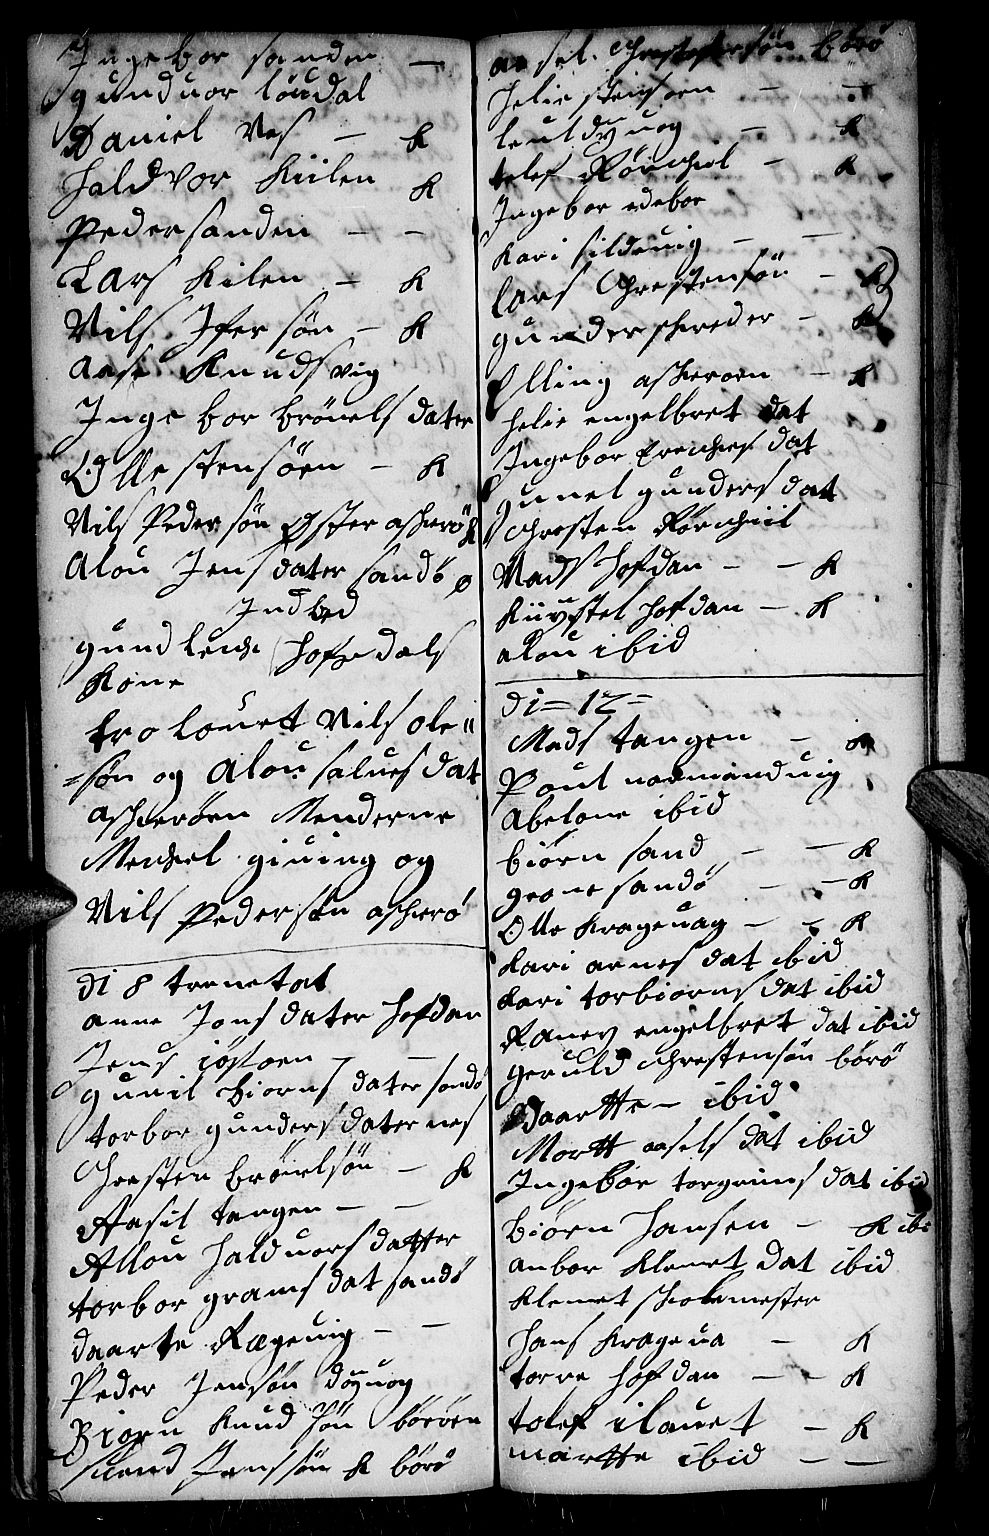 Ingebor sanden —
gunduor löudal
Daniel Næs — K
Haldvor Kiilen K
Peder sanden — —
Lars Kilen — K
Nils Ifersön — K
Aase Knudsvig
Ingebor bröuels dater
Olle stensöen — K
Nils Pedersön Øster askerö K
Alou Jensdater sandö
Ind Led
gundleich Hofsdals
Kone
trolouet Nils ole⹀
⹀sön og Alou salues dat
askerøen Menderne
Mechel giuing og
Nils Pedersön askerö
di 8 trenetat
anne Jons dater Hofdan
Jens iöstöen — —
gunil biorns dater sandö
torbor gunders dater nes
Chresten bröuelsön — K
Aasil tangen — —
Allou Halduors datter
torbor grams dat sandö
daarte Rægeuig — —
Peder Jensön döuog
Biorn Knudsön boröen
suend Jenssön K börö
aasel Chrestofersön börö
Helie stensöen — —
leul dyuog — K
tolef Rörkiil — K
Ingebor
Kari sildeuig — —
Lars Chrestensön — K
gunder skreder — K
Elling askeroen — K
Helie engelbret dat
Ingebor dat
gunel gunders dat
Chresten Rörkiil
Mads Hofdan — — K
Kiøstel Hofdan — K
alou ibid
di — 12 —
Mads tangen — K
Poul normanduig
Abelone ibid
biörn sand — — K
geone sandö — — K
Olle Krageuag — — K
Kari arnes dat ibid
Kari torbiorns dat ibid
Raner engelbret dat ibid
geruld Chrestensön börö
Daartte — ibid
Martt aasels dat ibid
Ingebör torgrims dat ibid
biörn Hansen — K ibi
anbor Klemet dat ibid
Klemet skolemester
Hans Krageua — K
torre Hofdan — — K
tolef ilauet — K
martte ibid — —